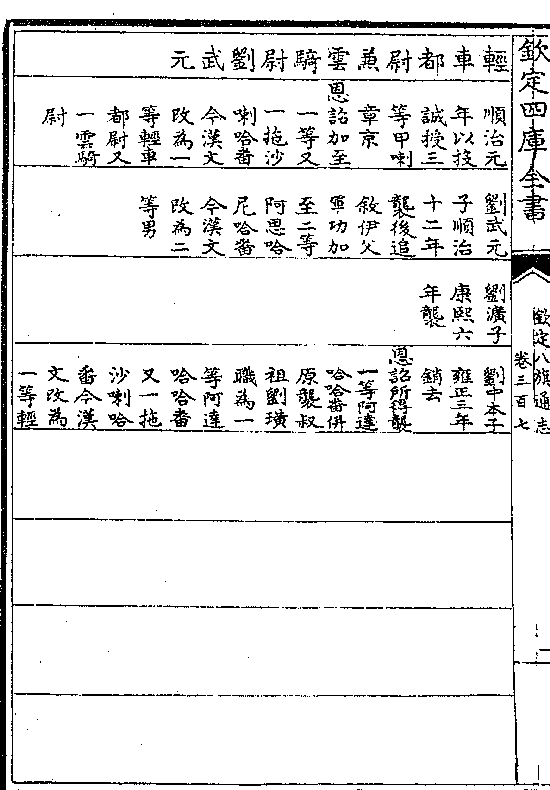 欽定四庫全書
欽定八旗通志
卷三百七
輕車都尉兼雲騎尉劉武元
順治元
年以投
誠授三
等甲喇
章京
恩詔加至
一等又
一拖沙
喇哈番
今漢文
改為一
等輕車
都尉又
一雲騎
尉
劉武元
子順治
十二年
襲後追
敘伊父
軍功加
至二等
阿思哈
尼哈番
今漢文
改為二
等男
劉瀇子
康熙六
年襲
劉中本子
雍正三年
銷去
恩詔所得襲
一等阿達
哈哈番併
原襲叔
祖劉璜
職為一
等阿達
哈哈番
又一拖
沙喇哈
番今漢
文改為
一等輕